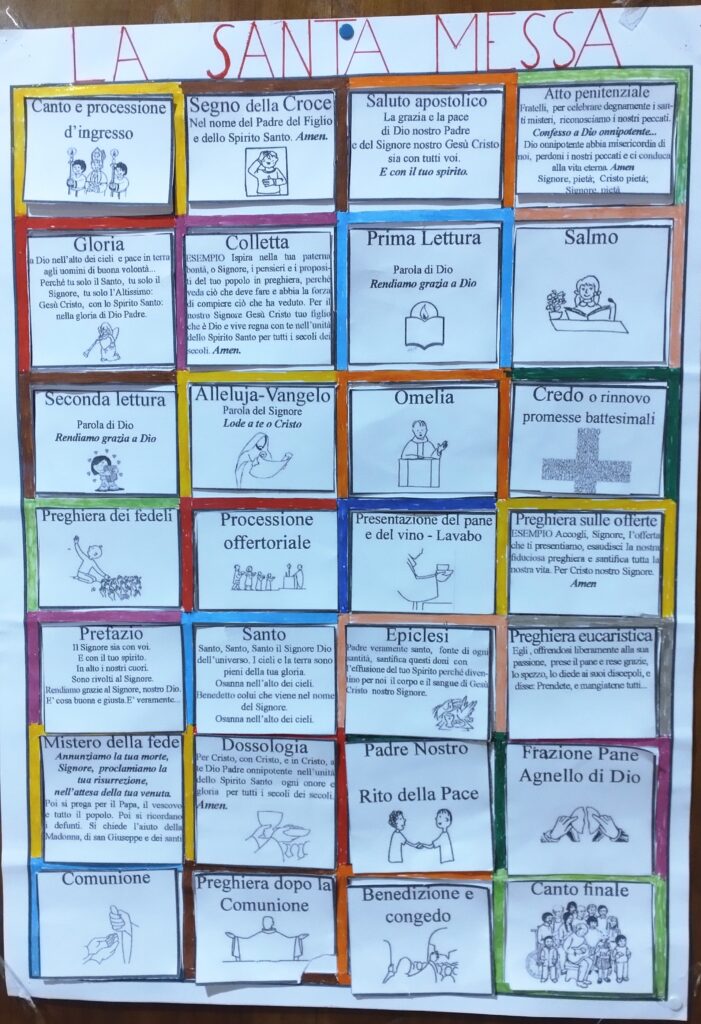 LA SANTA MESSA
Canto e processione
d'ingresso
Segno della Croce
Nel nome del Padre del Figlio
e dello Spirito Santo. Amen.
Saluto apostolico
La grazia e la pace
di Dio nostro Padre
e del Signore nostro Gesù Cristo
sia con tutti voi.
E con il tuo spirito.
Atto penitenziale
Fratelli, per celebrare degnamente i san-
ti misteri, riconosciamo i nostri peccati.
Confesso a Dio onnipotente...
Dio onnipotente abbia misericordia di
noi, perdoni i nostri peccati e ci conduca
alla vita eterna. Amen
Signore, pietà; Cristo pietà;
Signore, pietà
Gloria
a Dio nell'alto dei cieli e pace in terra
agli uomini di buona volontà...
Perché tu solo il Santo, tu solo il
Signore, tu solo l'Altissimo:
Gesù Cristo, con lo Spirito Santo:
nella gloria di Dio Padre.
Colletta
ESEMPIO Ispira nella tua paterna
bontà, o Signore, i pensieri e i proposi-
ti del tuo popolo in preghiera, perché
veda ciò che deve fare e abbia la forza
di compiere ciò che ha veduto. Per il
nostro Signore Gesù Cristo tuo figlio
che è Dio e vive regna con te nell'unità
dello Spirito Santo per tutti i secoli dei
secoli. Amen.
Prima Lettura
Parola di Dio
Rendiamo grazia a Dio
Salmo
Seconda lettura
Parola di Dio
Rendiamo grazia a Dio
Alleluja-Vangelo
Parola del Signore
Lode a te o Cristo
Omelia
Credo o rinnovo
promesse battesimali
Preghiera dei fedeli
Processione
offertoriale
Presentazione del pane
e del vino - Lavabo
Preghiera sulle offerte
ESEMPIO Accogli, Signore, l'offerta
che ti presentiamo, esaudisci la nostra
fiduciosa preghiera e santifica tutta la
nostra vita. Per Cristo nostro Signore.
Amen
Prefazio
Il Signore sia con voi.
E con il tuo spirito.
In alto i nostri cuori.
Sono rivolti al Signore.
Rendiamo grazie al Signore, nostro Dio.
E' cosa buona e giusta.E' veramente...
Santo
Santo, Santo, Santo il Signore Dio
dell'universo. I cieli e la terra sono
pieni della tua gloria.
Osanna nell'alto dei cieli.
Benedetto colui che viene nel nome
del Signore.
Osanna nell'alto dei cieli.
Epiclesi
Padre veramente santo, fonte di ogni
santità, santifica questi doni con
l'effusione del tuo Spirito perché diven-
tino per noi il corpo e il sangue di Gesù
Cristo nostro Signore.
Preghiera eucaristica
Egli, offrendosi liberamente alla sua
passione, prese il pane e rese grazie,
lo spezzo, lo diede ai suoi discepoli, e
disse: Prendete, e mangiatene tutti...
Mistero della fede
Annunziamo la tua morte,
Signore, proclamiamo la
tua risurrezione,
nell'attesa della tua venuta.
Poi si prega per il Papa, il vescovo
e tutto il popolo. Poi si ricordano
i defunti. Si chiede l'aiuto della
Madonna, di san Giuseppe e dei santi
Dossologia
Per Cristo, con Cristo, e in Cristo, a
te Dio Padre onnipotente nell'unità
dello Spirito Santo ogni onore e
gloria per tutti i secoli dei secoli.
Amen.
Padre Nostro
Rito della Pace
Frazione Pane
Agnello di Dio
Comunione
Preghiera dopo la
Comunione
Benedizione e
congedo
Canto finale